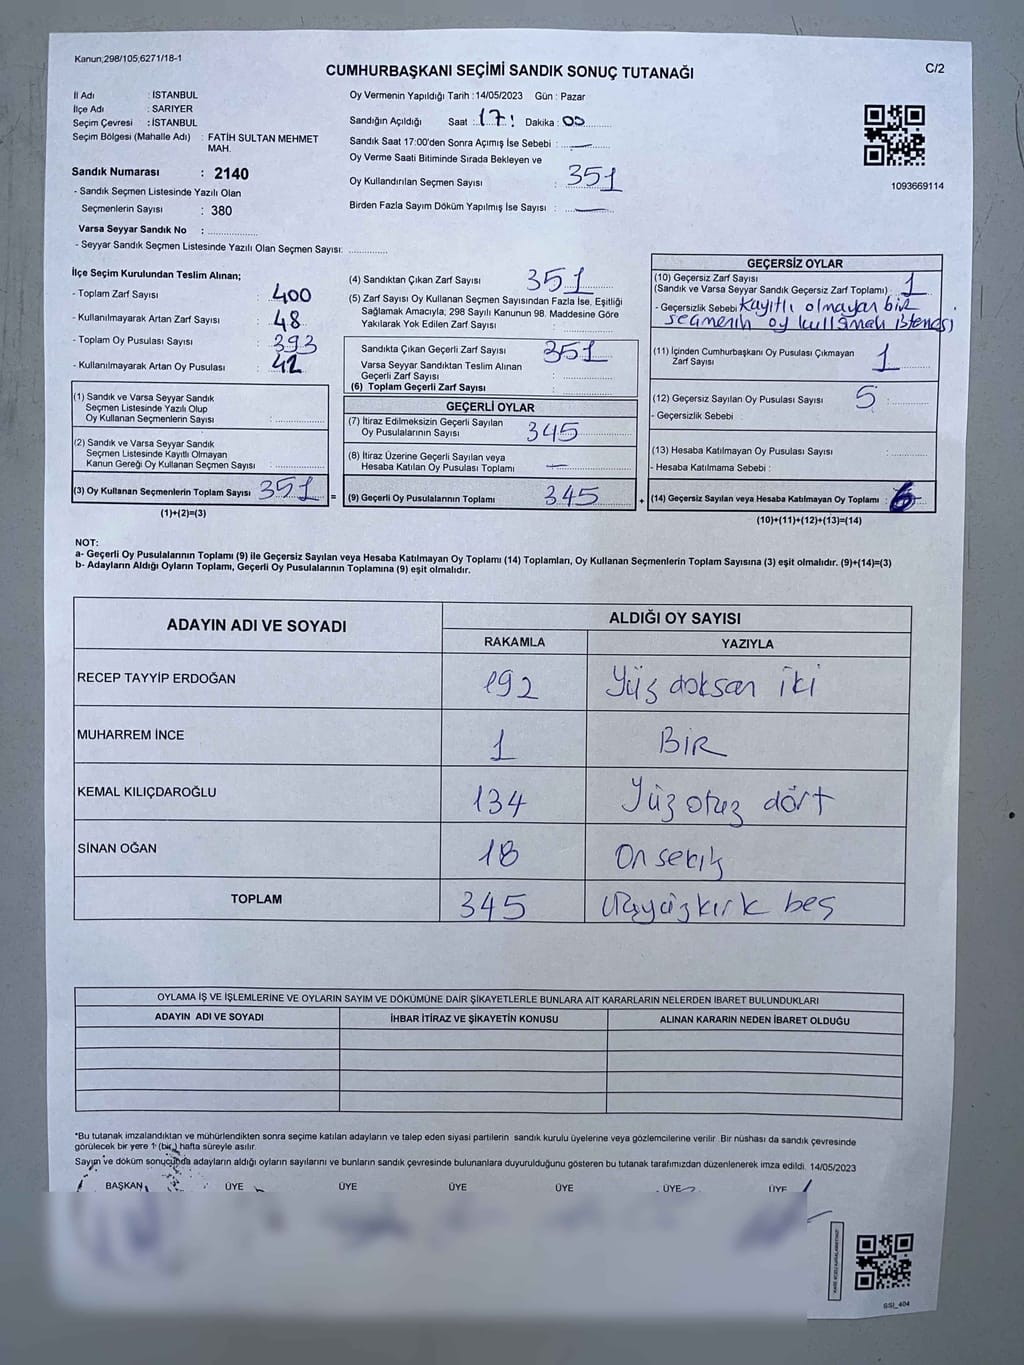 Kanun;298/105,6271/18-1
CUMHURBAŞKANI SEÇİMİ SANDIK SONUÇ TUTANAĞI
C/2
İl Adı : İSTANBUL
İlçe Adı : SARIYER
Seçim Çevresi : İSTANBUL
Seçim Bölgesi (Mahalle Adı) : FATİH SULTAN MEHMET
MAH.
Sandık Numarası : 2140
- Sandık Seçmen Listesinde Yazılı Olan
Seçmenlerin Sayısı : 380
Varsa Seyyar Sandık No :
- Seyyar Sandık Seçmen Listesinde Yazılı Olan Seçmen Sayısı:
Oy Vermenin Yapıldığı Tarih : 14/05/2023 Gün : Pazar
Sandığın Açıldığı Saat : 17 : Dakika : 00
Sandık Saat 17:00'den Sonra Açımış İse Sebebi : —
Oy Verme Saati Bitiminde Sırada Bekleyen ve
Oy Kullandırılan Seçmen Sayısı : 351
Birden Fazla Sayım Döküm Yapılmış İse Sayısı : —
1093669114
İlçe Seçim Kurulundan Teslim Alınan;
- Toplam Zarf Sayısı : 400
- Kullanılmayarak Artan Zarf Sayısı : 48
- Toplam Oy Pusulası Sayısı : 393
- Kullanılmayarak Artan Oy Pusulası : 42
(1) Sandık ve Varsa Seyyar Sandık
Seçmen Listesinde Yazılı Olup
Oy Kullanan Seçmenlerin Sayısı :
(2) Sandık ve Varsa Seyyar Sandık
Seçmen Listesinde Kayıtlı Olmayan
Kanun Gereği Oy Kullanan Seçmen Sayısı :
(3) Oy Kullanan Seçmenlerin Toplam Sayısı 351
(1)+(2)=(3)
(4) Sandıktan Çıkan Zarf Sayısı 351
(5) Zarf Sayısı Oy Kullanan Seçmen Sayısından Fazla İse, Eşitliği
Sağlamak Amacıyla, 298 Sayılı Kanunun 98. Maddesine Göre
Yakılarak Yok Edilen Zarf Sayısı :
Sandıkta Çıkan Geçerli Zarf Sayısı 351
Varsa Seyyar Sandıktan Teslim Alınan
Geçerli Zarf Sayısı :
(6) Toplam Geçerli Zarf Sayısı :
GEÇERLİ OYLAR
(7) İtiraz Edilmeksizin Geçerli Sayılan
Oy Pusulalarının Sayısı 345
(8) İtiraz Üzerine Geçerli Sayılan veya
Hesaba Katılan Oy Pusulası Toplamı —
= (9) Geçerli Oy Pusulalarının Toplamı 345 +
GEÇERSİZ OYLAR
(10) Geçersiz Zarf Sayısı
(Sandık ve Varsa Seyyar Sandık Geçersiz Zarf Toplamı) : 1
- Geçersizlik Sebebi Kayıtlı olmayan bir
seçmenin oy kullanmak istemesi
(11) İçinden Cumhurbaşkanı Oy Pusulası Çıkmayan
Zarf Sayısı 1
(12) Geçersiz Sayılan Oy Pusulası Sayısı 5
- Geçersizlik Sebebi :
(13) Hesaba Katılmayan Oy Pusulası Sayısı :
- Hesaba Katılmama Sebebi :
(14) Geçersiz Sayılan veya Hesaba Katılmayan Oy Toplamı : 6
(10)+(11)+(12)+(13)=(14)
NOT:
a- Geçerli Oy Pusulalarının Toplamı (9) ile Geçersiz Sayılan veya Hesaba Katılmayan Oy Toplamı (14) Toplamları, Oy Kullanan Seçmenlerin Toplam Sayısına (3) eşit olmalıdır. (9)+(14)=(3)
b- Adayların Aldığı Oyların Toplamı, Geçerli Oy Pusulalarının Toplamına (9) eşit olmalıdır.
ADAYIN ADI VE SOYADI
ALDIĞI OY SAYISI
RAKAMLA YAZIYLA
RECEP TAYYİP ERDOĞAN 192 Yüz doksan iki
MUHARREM İNCE 1 BİR
KEMAL KILIÇDAROĞLU 134 Yüz otuz dört
SİNAN OĞAN 18 On sekiz
TOPLAM 345 Üçyüzkırk beş
OYLAMA İŞ VE İŞLEMLERİNE VE OYLARIN SAYIM VE DÖKÜMÜNE DAİR ŞİKAYETLERLE BUNLARA AİT KARARLARIN NELERDEN İBARET BULUNDUKLARI
ADAYIN ADI VE SOYADI İHBAR İTİRAZ VE ŞİKAYETİN KONUSU ALINAN KARARIN NEDEN İBARET OLDUĞU
*Bu tutanak imzalandıktan ve mühürlendikten sonra seçime katılan adayların ve talep eden siyasi partilerin sandık kurulu üyelerine veya gözlemcilerine verilir. Bir nüshası da sandık çevresinde
görülecek bir yere 1 (bir) hafta süreyle asılır.
Sayım ve döküm sonucunda adayların aldığı oyların sayılarını ve bunların sandık çevresinde bulunanlara duyurulduğunu gösteren bu tutanak tarafımızdan düzenlenerek imza edildi. 14/05/2023
BAŞKAN ÜYE ÜYE ÜYE ÜYE ÜYE ÜYE
SSİ_404